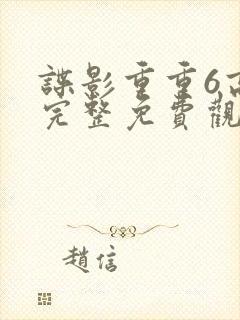 諜影重重6高
完整免費觀
趙信